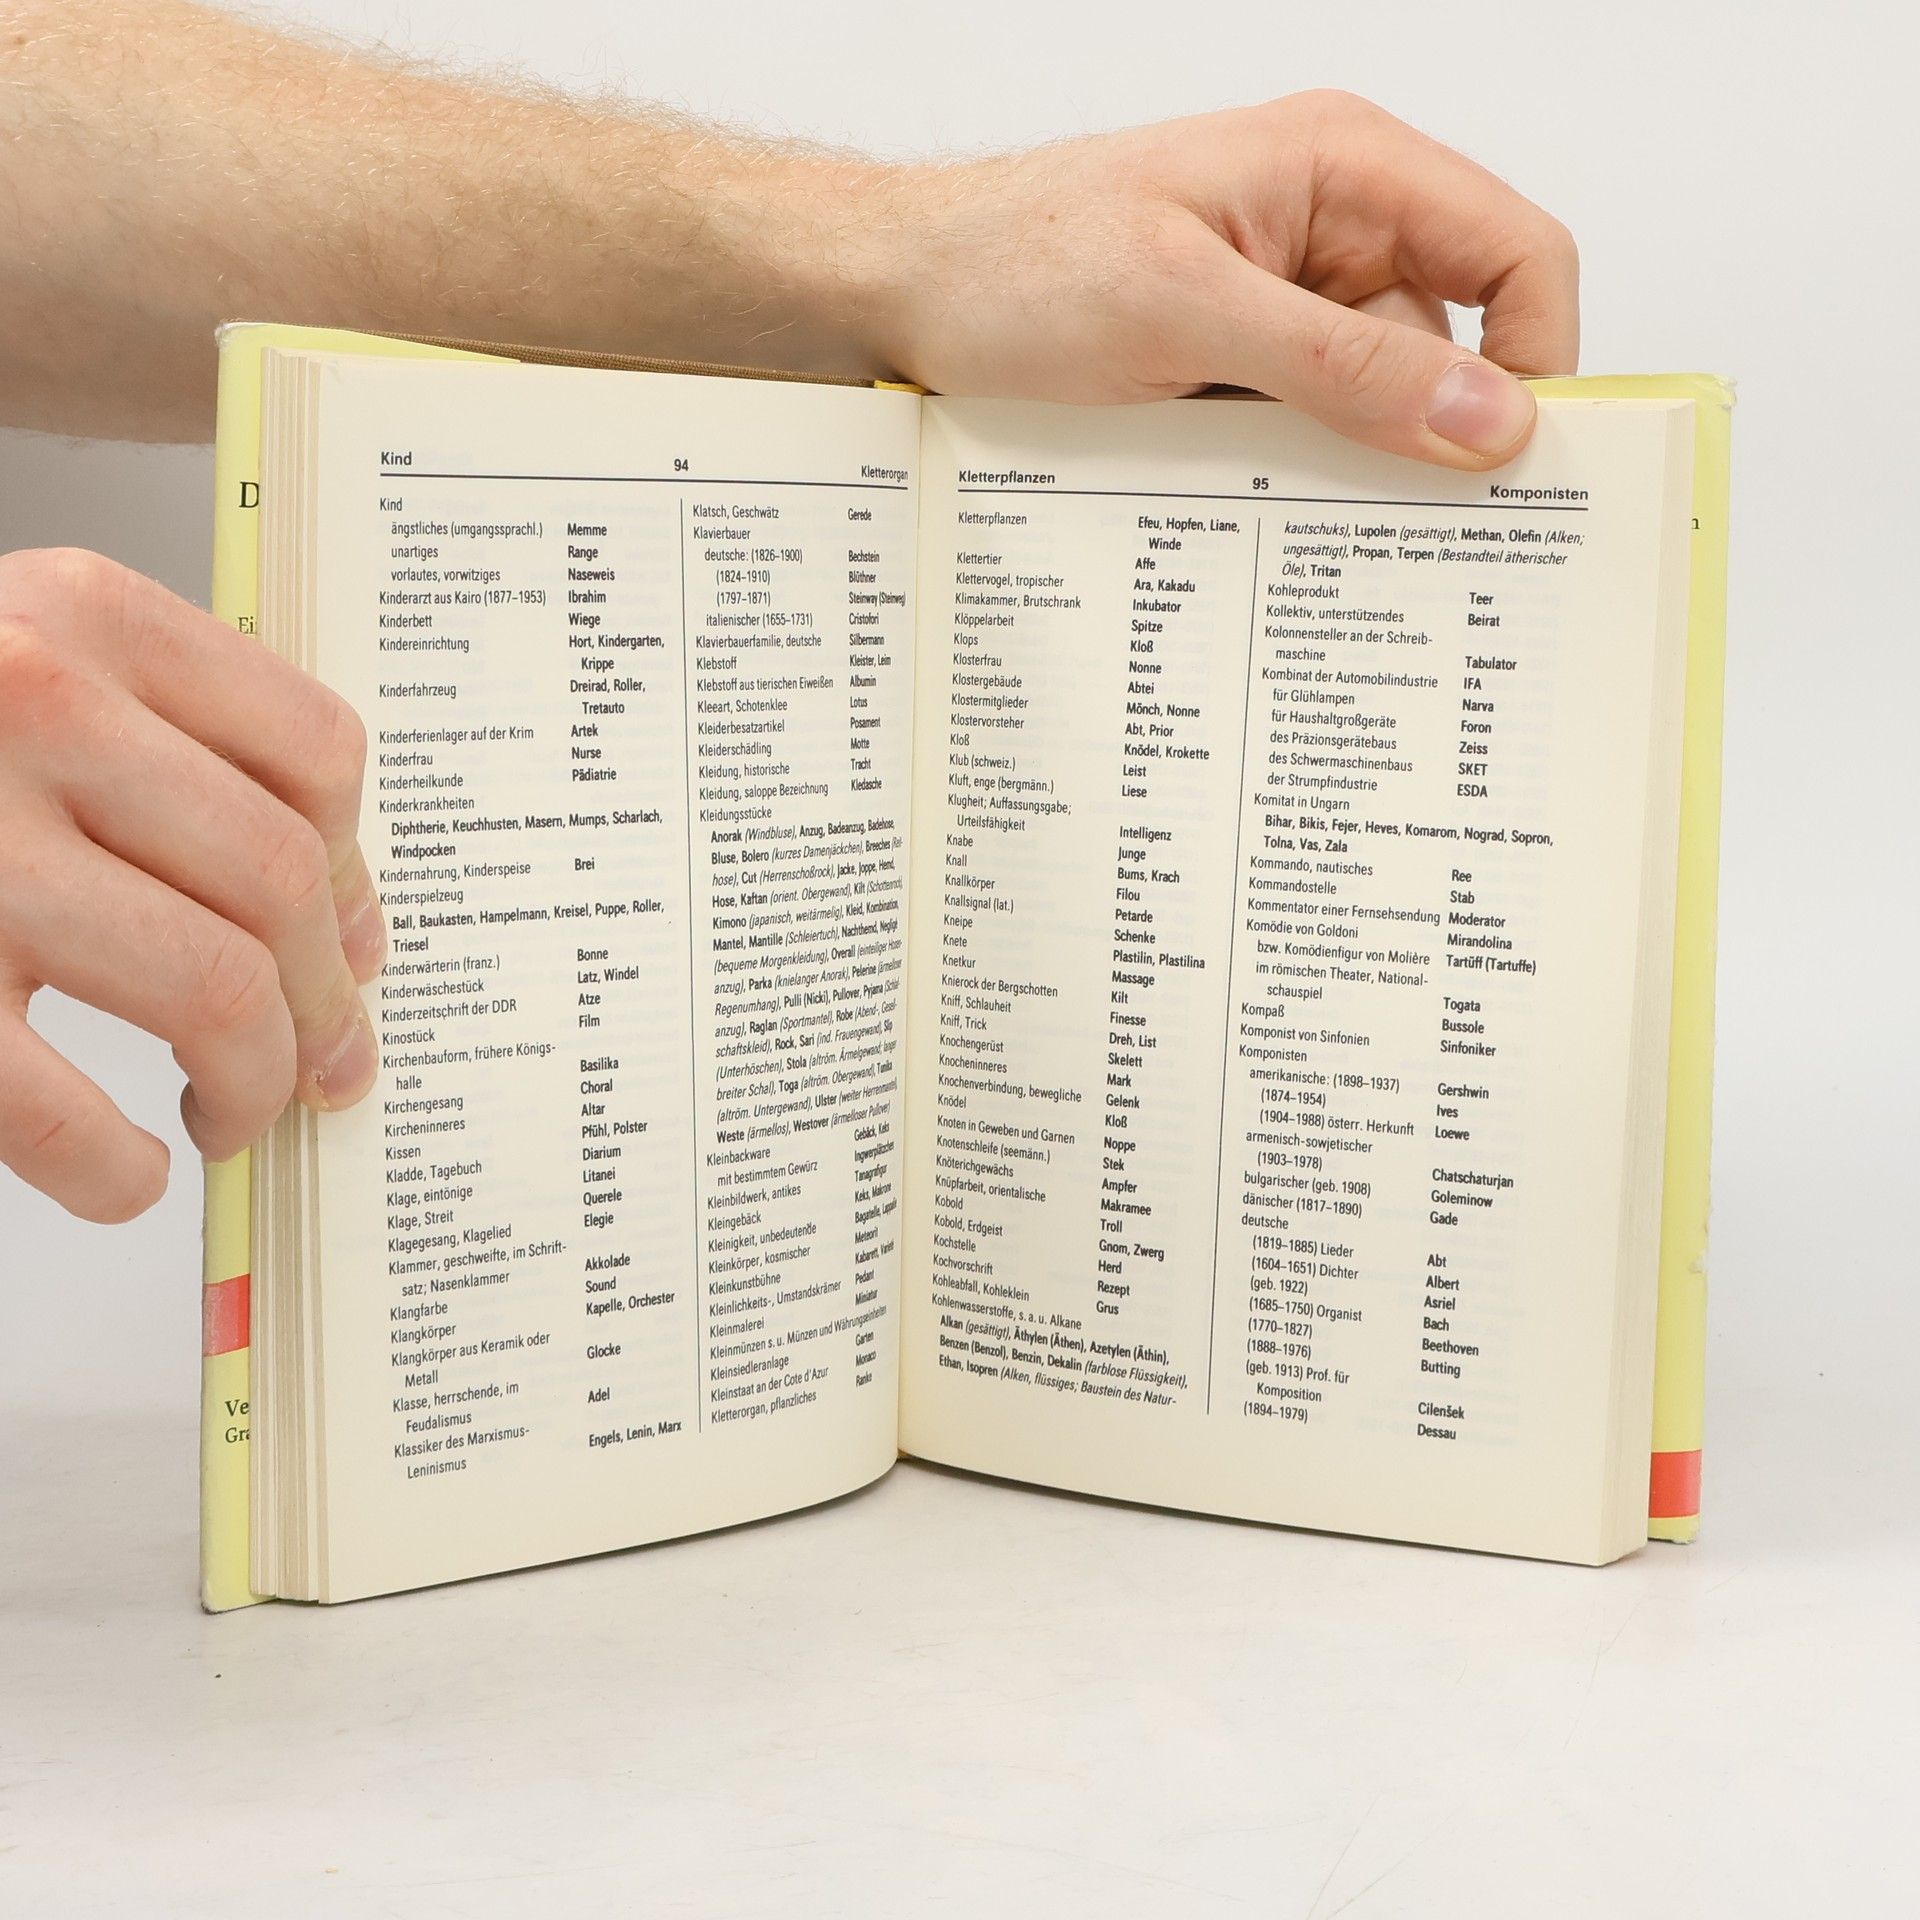 D
Ei
Ve
Gra
Kind 94 Kletterorgan
Kind
ängstliches (umgangssprachl.) Memme
unartiges Range
vorlautes, vorwitziges Naseweis
Kinderarzt aus Kairo (1877–1953) Ibrahim
Kinderbett Wiege
Kindereinrichtung Hort, Kindergarten,
Krippe
Kinderfahrzeug Dreirad, Roller,
Tretauto
Kinderferienlager auf der Krim Artek
Kinderfrau Nurse
Kinderheilkunde Pädiatrie
Kinderkrankheiten
Diphtherie, Keuchhusten, Masern, Mumps, Scharlach,
Windpocken
Kindernahrung, Kinderspeise Brei
Kinderspielzeug
Ball, Baukasten, Hampelmann, Kreisel, Puppe, Roller,
Triesel
Kinderwärterin (franz.) Bonne
Kinderwäschestück Latz, Windel
Kinderzeitschrift der DDR Atze
Kinostück Film
Kirchenbauform, frühere Königs-
halle Basilika
Kirchengesang Choral
Kircheninneres Altar
Kissen Pfühl, Polster
Kladde, Tagebuch Diarium
Klage, eintönige Litanei
Klage, Streit Querele
Klagegesang, Klagelied Elegie
Klammer, geschweifte, im Schrift-
satz; Nasenklammer Akkolade
Klangfarbe Sound
Klangkörper Kapelle, Orchester
Klangkörper aus Keramik oder
Metall Glocke
Klasse, herrschende, im
Feudalismus Adel
Klassiker des Marxismus-
Leninismus Engels, Lenin, Marx
Klatsch, Geschwätz Gerede
Klavierbauer
deutsche: (1826–1900) Bechstein
(1824–1910) Blüthner
(1797–1871) Steinway (Steinweg)
italienischer (1655–1731) Cristofori
Klavierbauerfamilie, deutsche Silbermann
Klebstoff Kleister, Leim
Klebstoff aus tierischen Eiweißen Albumin
Kleeart, Schotenklee Lotus
Kleiderbesatzartikel Posament
Kleiderschädling Motte
Kleidung, historische Tracht
Kleidung, saloppe Bezeichnung Kledasche
Kleidungsstücke
Anorak (Windbluse), Anzug, Badeanzug, Badehose,
Bluse, Bolero (kurzes Damenjäckchen), Breeches (Reit-
hose), Cut (Herrenschoßrock), Jacke, Joppe, Hemd,
Hose, Kaftan (orient. Obergewand), Kilt (Schottenrock),
Kimono (japanisch, weitärmelig), Kleid, Kombination,
Mantel, Mantille (Schleiertuch), Nachthemd, Negligé
(bequeme Morgenkleidung), Overall (einteiliger Hosen-
anzug), Parka (knielanger Anorak), Pelerine (ärmelloser
Regenumhang), Pulli (Nicki), Pullover, Pyjama (Schlaf-
anzug), Raglan (Sportmantel), Robe (Abend-, Gesell-
schaftskleid), Rock, Sari (ind. Frauengewand), Slip
(Unterhöschen), Stola (altröm. Ärmelgewand; langer
breiter Schal), Toga (altröm. Obergewand), Tunika
(altröm. Untergewand), Ulster (weiter Herrenmantel),
Weste (ärmellos), Westover (ärmelloser Pullover)
Kleinbackware Gebäck, Keks
mit bestimmtem Gewürz Ingwerplätzchen
Kleinbildwerk, antikes Tanagrafigur
Kleingebäck Keks, Makrone
Kleinigkeit, unbedeutende Bagatelle, Lappalie
Kleinkörper, kosmischer Meteorit
Kleinkunstbühne Kabarett, Varieté
Kleinlichkeits-, Umstandskrämer Pedant
Kleinmalerei Miniatur
Kleinmünzen s. u. Münzen und Währungseinheiten
Kleinsiedleranlage Garten
Kleinstaat an der Cote d'Azur Monaco
Kletterorgan, pflanzliches Ranke
Kletterpflanzen 95 Komponisten
Kletterpflanzen Efeu, Hopfen, Liane,
Winde
Klettertier Affe
Klettervogel, tropischer Ara, Kakadu
Klimakammer, Brutschrank Inkubator
Klöppelarbeit Spitze
Klops Kloß
Klosterfrau Nonne
Klostergebäude Abtei
Klostermitglieder Mönch, Nonne
Klostervorsteher Abt, Prior
Kloß Knödel, Krokette
Klub (schweiz.) Leist
Kluft, enge (bergmänn.) Liese
Klugheit; Auffassungsgabe;
Urteilsfähigkeit Intelligenz
Knabe Junge
Knall Bums, Krach
Knallkörper Filou
Knallsignal (lat.) Petarde
Kneipe Schenke
Knete Plastilin, Plastilina
Knetkur Massage
Knierock der Bergschotten Kilt
Kniff, Schlauheit Finesse
Kniff, Trick Dreh, List
Knochengerüst Skelett
Knocheninneres Mark
Knochenverbindung, bewegliche Gelenk
Knödel Kloß
Knoten in Geweben und Garnen Noppe
Knotenschleife (seemänn.) Stek
Knöterichgewächs Ampfer
Knüpfarbeit, orientalische Makramee
Kobold Troll
Kobold, Erdgeist Gnom, Zwerg
Kochstelle Herd
Kochvorschrift Rezept
Kohleabfall, Kohleklein Grus
Kohlenwasserstoffe, s. a. u. Alkane
Alkan (gesättigt), Äthylen (Äthen), Azetylen (Äthin),
Benzen (Benzol), Benzin, Dekalin (farblose Flüssigkeit),
Ethan, Isopren (Alken, flüssiges; Baustein des Natur-
kautschuks), Lupolen (gesättigt), Methan, Olefin (Alken;
ungesättigt), Propan, Terpen (Bestandteil ätherischer
Öle), Tritan
Kohleprodukt Teer
Kollektiv, unterstützendes Beirat
Kolonnensteller an der Schreib-
maschine Tabulator
Kombinat der Automobilindustrie IFA
für Glühlampen Narva
für Haushaltgroßgeräte Foron
des Präzionsgerätebaus Zeiss
des Schwermaschinenbaus SKET
der Strumpfindustrie ESDA
Komitat in Ungarn
Bihar, Bikis, Fejer, Heves, Komarom, Nograd, Sopron,
Tolna, Vas, Zala
Kommando, nautisches Ree
Kommandostelle Stab
Kommentator einer Fernsehsendung Moderator
Komödie von Goldoni Mirandolina
bzw. Komödienfigur von Molière Tartüff (Tartuffe)
im römischen Theater, National-
schauspiel Togata
Kompaß Bussole
Komponist von Sinfonien Sinfoniker
Komponisten
amerikanische: (1898–1937) Gershwin
(1874–1954) Ives
(1904–1988) österr. Herkunft Loewe
armenisch-sowjetischer
(1903–1978) Chatschaturjan
bulgarischer (geb. 1908) Goleminow
dänischer (1817–1890) Gade
deutsche
(1819–1885) Lieder Abt
(1604–1651) Dichter Albert
(geb. 1922) Asriel
(1685–1750) Organist Bach
(1770–1827) Beethoven
(1888–1976) Butting
(geb. 1913) Prof. für
Komposition Cilenšek
(1894–1979) Dessau
n